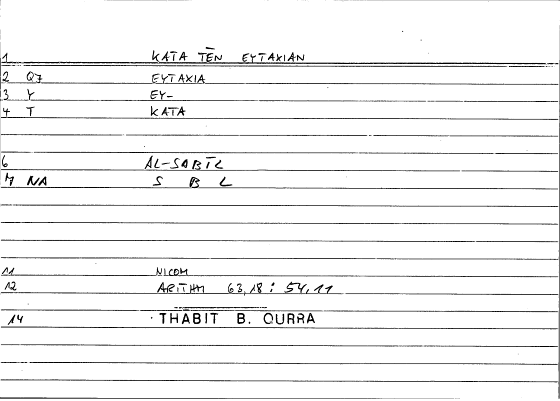 1 KATA TĒN EYTAXIAN
2 Q7 EYTAXIA
3 Y EY-
4 T KATA
6 AL-SABĪL
7 NA S B L
11 NICOM
12 ARITHM 63,18 : 54,11
14 THABIT B. QURRA